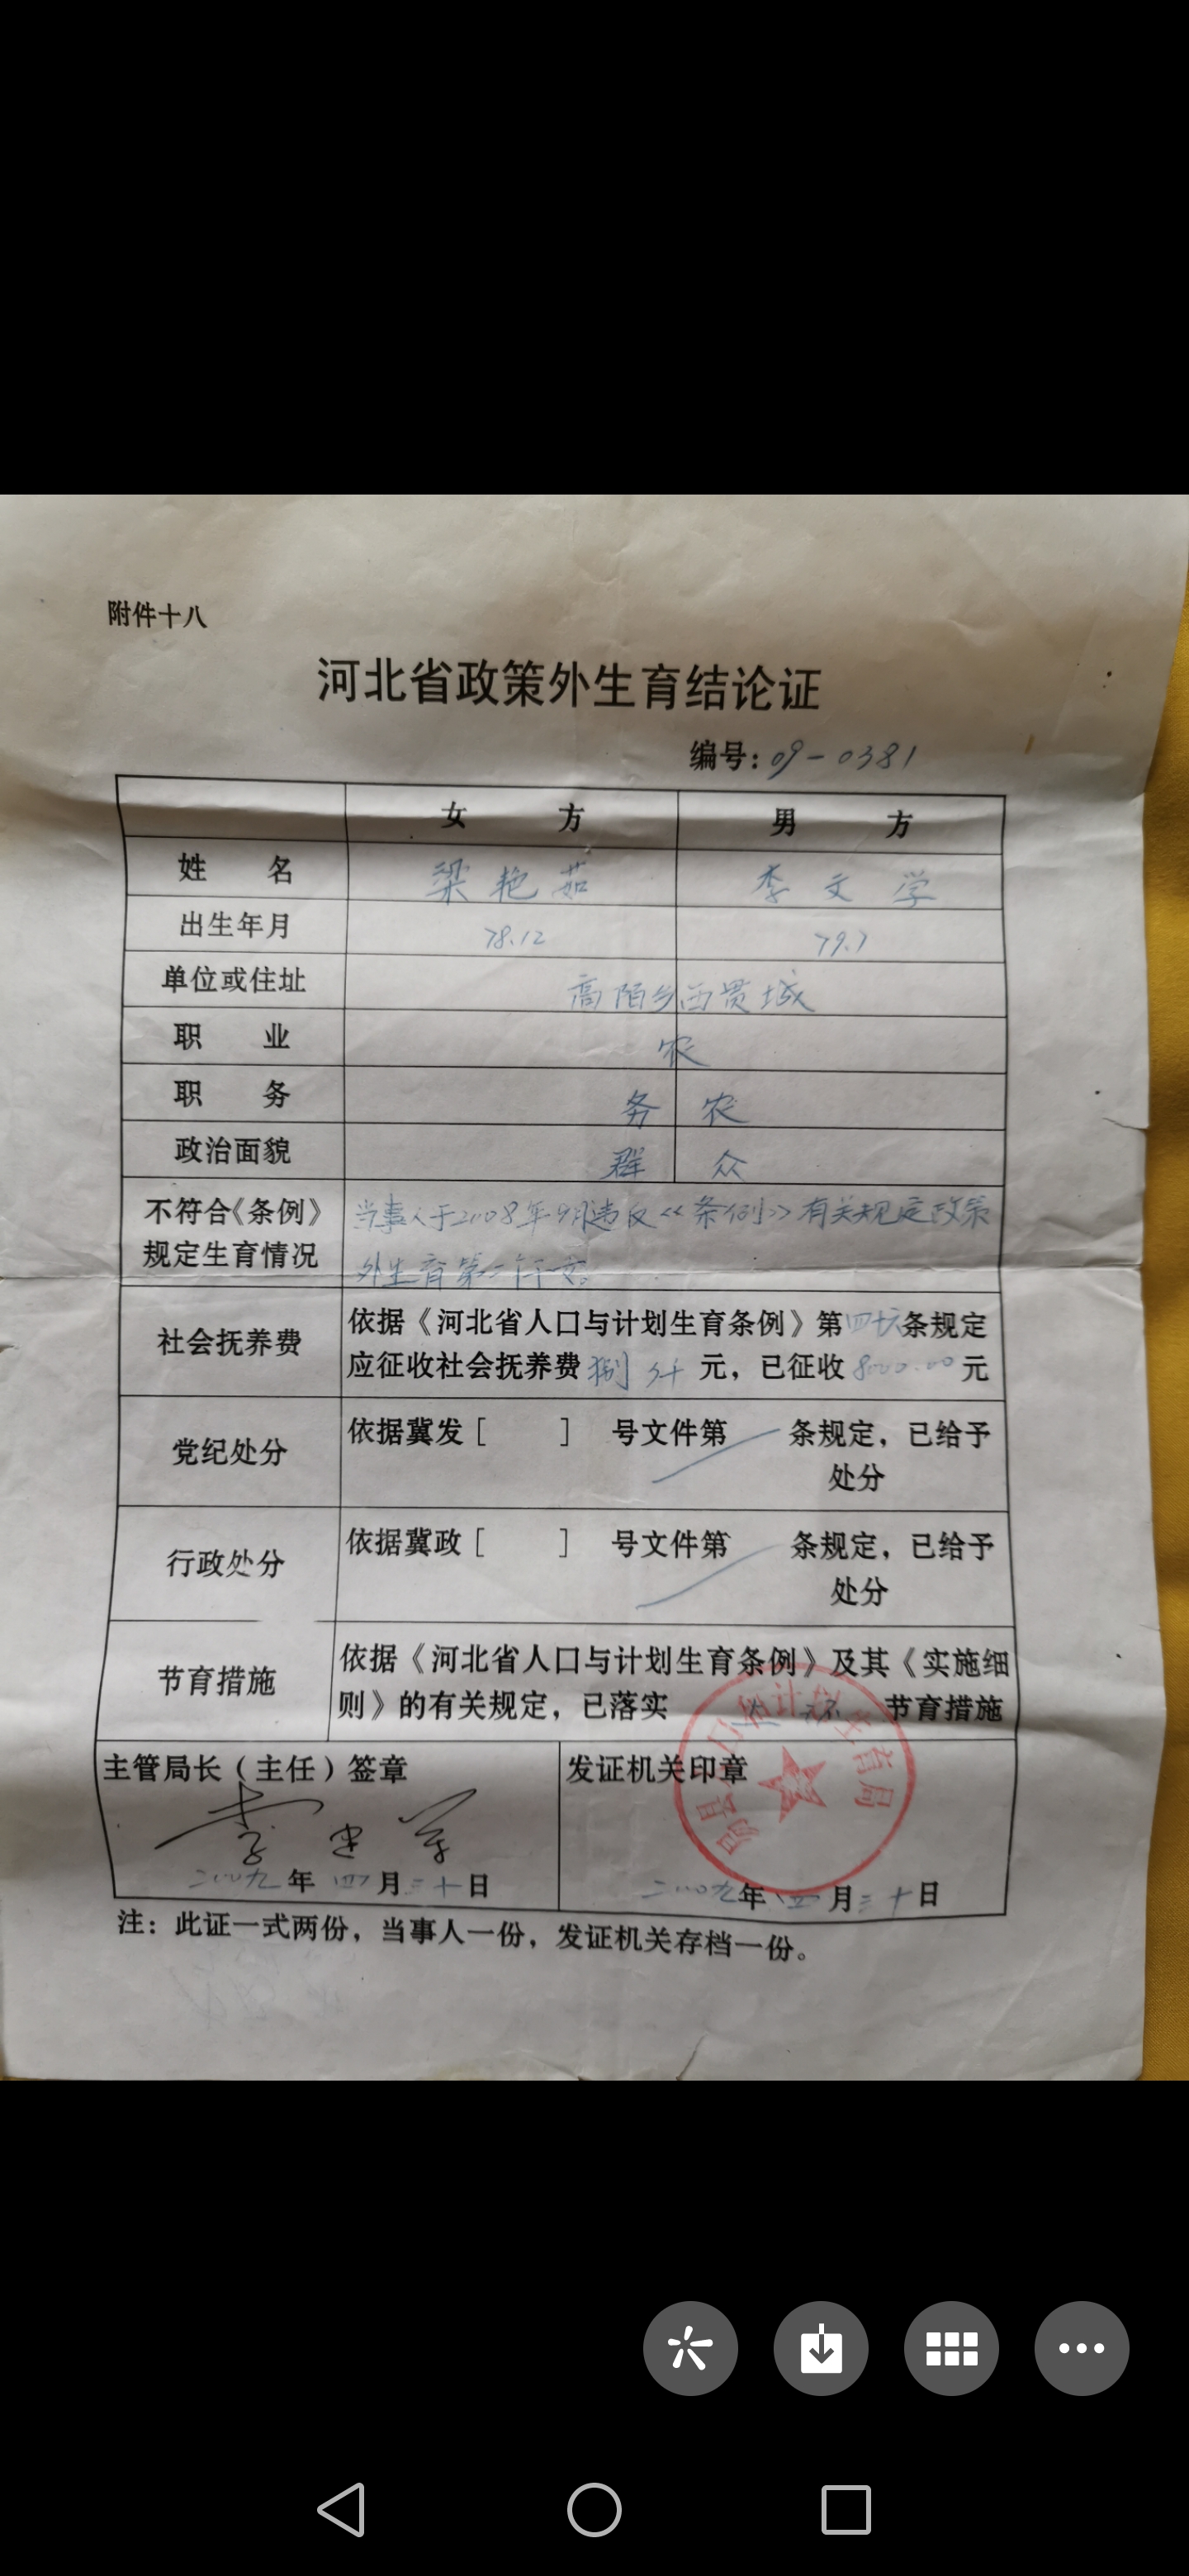 附件十八
河北省政策外生育结论证
编号：09-0381
女 方 男 方
姓 名 梁艳茹 李文学
出生年月 78.12 79.7
单位或住址 高陌乡西贯城
职 业 农
职 务 务农
政治面貌 群众
不符合《条例》 当事人于2008年9月违反《条例》有关规定政策
规定生育情况 外生育第二
社会抚养费 依据《河北省人口与计划生育条例》第 条规定
应征收社会抚养费捌仟元，已征收8000.00元
党纪处分 依据冀发［ ］ 号文件第 条规定，已给予
处分
行政处分 依据冀政［ ］ 号文件第 条规定，已给予
处分
节育措施 依据《河北省人口与计划生育条例》及其《实施细
则》的有关规定，已落实 节育措施
主管局长（主任）签章 发证机关印章
易县人口和计划生育局
二〇〇九年四月三十日 二〇〇九年四月三十日
注：此证一式两份，当事人一份，发证机关存档一份。